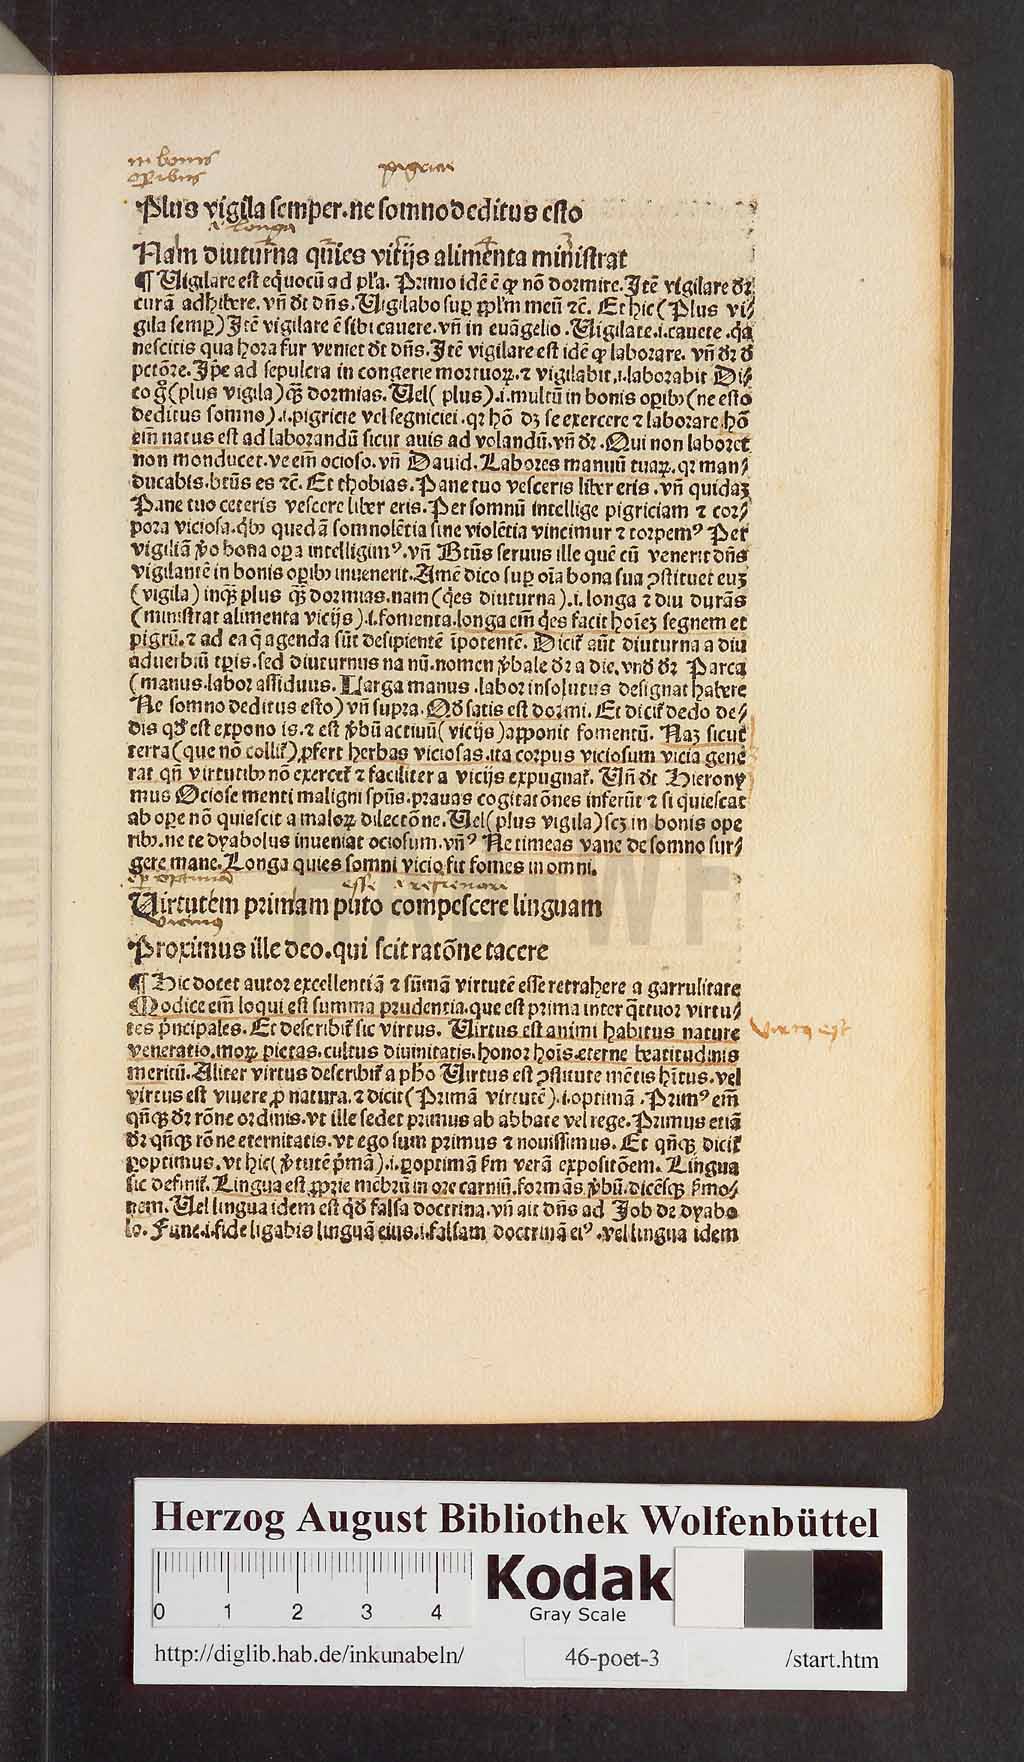 in bonis
operibus
pigricie
Plus vigila semper. ne somno deditus esto
.i. longa
Nam diuturna quies vitijs alimenta ministrat
¶ Uigilare est eq̄uocū ad pl'a. Primo idē ē qƺ nō dormire. Itē vigilare dr̄
curā adhibere. vn̄ dt dn̄s. Uigilabo suꝑ ꝓpl'm meū ⁊c̄. Et hic (Plus vi⸗
gila semꝑ) Itē vigilare ē sibi cauere. vn̄ in euāgelio. Uigilate .i. cauete . qꝛ
nescitis qua hora fur veniet dt dn̄s. Itē vigilare est idē qƺ laborare. vn̄ dr̄ đ
pctōre. Ip̄e ad sepulcra in congerie mortuoꝝ. ⁊ vigilabit .i. laborabit Di⸗
co g̊ (plus vigila) qƺ̄ dormias. Uel (plus) .i. multū in bonis oꝑibꝰ (ne esto
deditus somno) .i. pigricie vel segniciei . qꝛ hō dƺ se exercere ⁊ laborare hō
em̄ natus est ad laborandū sicut auis ad volandū. vn̄ dr̄. Qui non laboret
non monducet. ve em̄ ocioso. vn̄ Dauid. Labores manuū tuaꝝ. qꝛ man⸗
ducabis. btūs es ⁊c̄. Et thobias. Pane tuo vesceris liber eris . vn̄ quidaƺ
Pane tuo ceteris vescere liber eris. Per somnū intellige pigriciam ⁊ cor⸗
pora viciosa. qꝰbꝰ quedā somnolētia sine violētia vincimur ⁊ torpemꝰ Per
vigiliā ꝟo bona oꝑa intelligimꝰ. vn̄ Btūs seruus ille quē cū venerit dn̄s
vigilantē in bonis oꝑibꝰ inuenerit. Amē dico suꝑ oīa bona sua ꝯstituet euƺ
(vigila) inqƺ plus qƺ̄ dormias. nam (qͥes diuturna) .i. longa ⁊ diu durās
(ministrat alimenta vicijs) .i. fomenta. longa em̄ qͥes facit hoīeƺ segnem et
pigrū. ⁊ ad ea q̄ agenda sūt desipientē īpotentē. Dicit᷑ aūt diuturna a diu
aduerbiū tꝑis. sed diuturnus na nū. nomen ꝟbale dr̄ a die. vnđ dr̄ Parca
(manus. labor assiduus. Larga manus . labor insolutus designat habere
Ne somno deditus esto) vn̄ supra. Qđ satis est dormi. Et dicit᷑ dedo de⸗
dis qđ est expono is. ⁊ est ꝟbū actiuū (vicijs) apponit fomentū. Naƺ sicut
terra (que nō collit᷑) ꝓfert herbas viciosas. ita corpus viciosum vicia gene
rat qn̄ virtutibꝰ nō exercet᷑ ⁊ faciliter a vicijs expugnat᷑. Un̄ dt Hierony
mus Ociose menti maligni spūs. prauas cogitatōnes inferūt ⁊ si quiescat
ab oꝑe nō quiescit a maloꝝ dilectōne. Uel (plus vigila) scƺ in bonis ope
ribꝰ. ne te dyabolus inueniat ociosum. vn̄ꝰ Ne timeas vane de somno sur⸗
gere mane. Longa quies somni vicio fit fomes in omni.
.i. optimā esse .i. refrenare
Uirtutem primam puto compescere linguam
vicinus
Proximus ille deo. qui scit ratōne tacere
¶ Hic docet autor excellentiā ⁊ sūmā virtutē esse retrahere a garrulitate
Modice em̄ loqui est summa prudentia. que est prima inter q̄ttuor virtu⸗
tes pͥncipales. Et describit᷑ sic virtus. Uirtus est animi habitus nature
virtus est
veneratio. moꝝ pietas. cultus diuinitatis. honor hoīs. eterne beatitudinis
meritū. Aliter virtus describit᷑ a pho Uirtus est ꝯstitute mētis hītus. vel
virtus est viuere ꝓ natura. ⁊ dicit (Primā virtutē) .i. optimā . Primꝰ em̄
qn̄qƺ dr̄ rōne ordinis. vt ille sedet primus ab abbate vel rege. Primus etiā
dr̄ qn̄qƺ rōne eternitatis. vt ego sum primus ⁊ nouissimus. Et qn̄qƺ dicit᷑
ꝓ optimus. vt hic (ꝟtutē pͥmā) .i. ꝑoptimā ẜm verā expositōem. Lingua
sic definit᷑. Lingua est ꝓprie mēbrū in ore carniū. formās ꝟbū. dicēsqƺ ẜmo⸗
nem. Uel lingua idem est qđ falsa doctrina. vn̄ ait dn̄s ad Job de dyabo
lo. Fune .i. fide ligabis linguā eius .i. falsam doctrinā eiꝰ . vel lingua idem
Herzog August Bibliothek Wolfenbüttel
0 1 2 3 4
Kodak
Gray Scale
http://diglib.hab.de/inkunabeln/ 46-poet-3 /start.htm